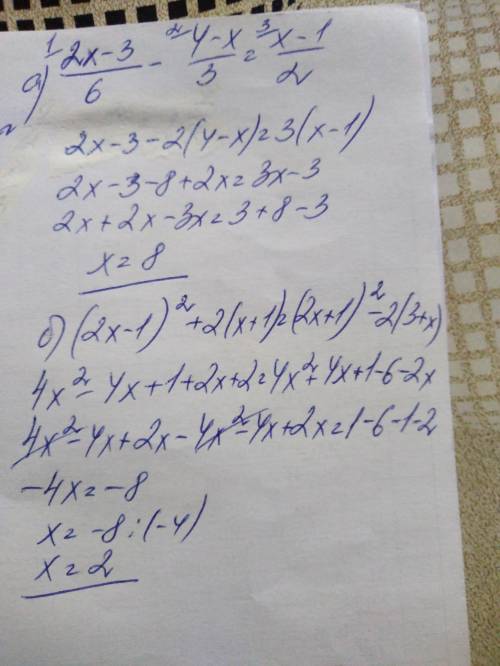 а) ¹(2x-3)/6 - ²(4-x)/3 = ³(x-1)/2
2x-3-2(4-x)=3(x-1)
2x-3-8+2x=3x-3
2x+2x-3x=3+8-3
x=8
б) (2x-1)²+2(x+1)=(2x+1)²-2(3+x)
4x²-4x+1+2x+2=4x²+4x+1-6-2x
4x²-4x+2x-4x²-4x+2x=1-6-1-2
-4x=-8
x=-8:(-4)
x=2